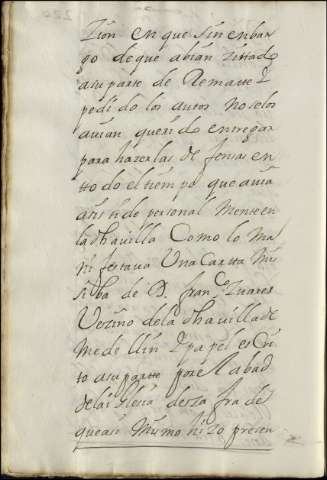 Zion en que sin enbar
go de que abian zittado
a su parte de Rematte y
pedido los autos no selos
avian querido entregar
para hazer las defensas en
tto do el tiempo que avia
asisttido personal Mente en
la dha villa Como lo Ma
nifestava Una Cartta Mi
siba de D. Franco Xuares
Vezino de la dha villa de
Medellin y papel escri
to a su partte por el abad
de la iglesia de
que asi Mismo hizo presen